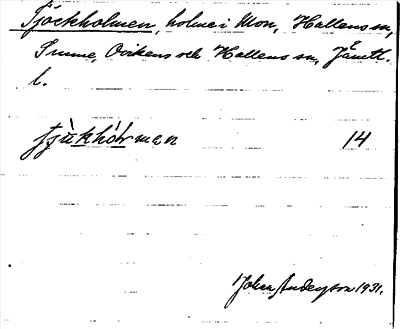 Tjöckholmen, holme i Mon, Hallens sn,
Ovikens och Hallens sn, Jämtl.
l.
tjùkhólmen 14
Johan Anderson 1931.